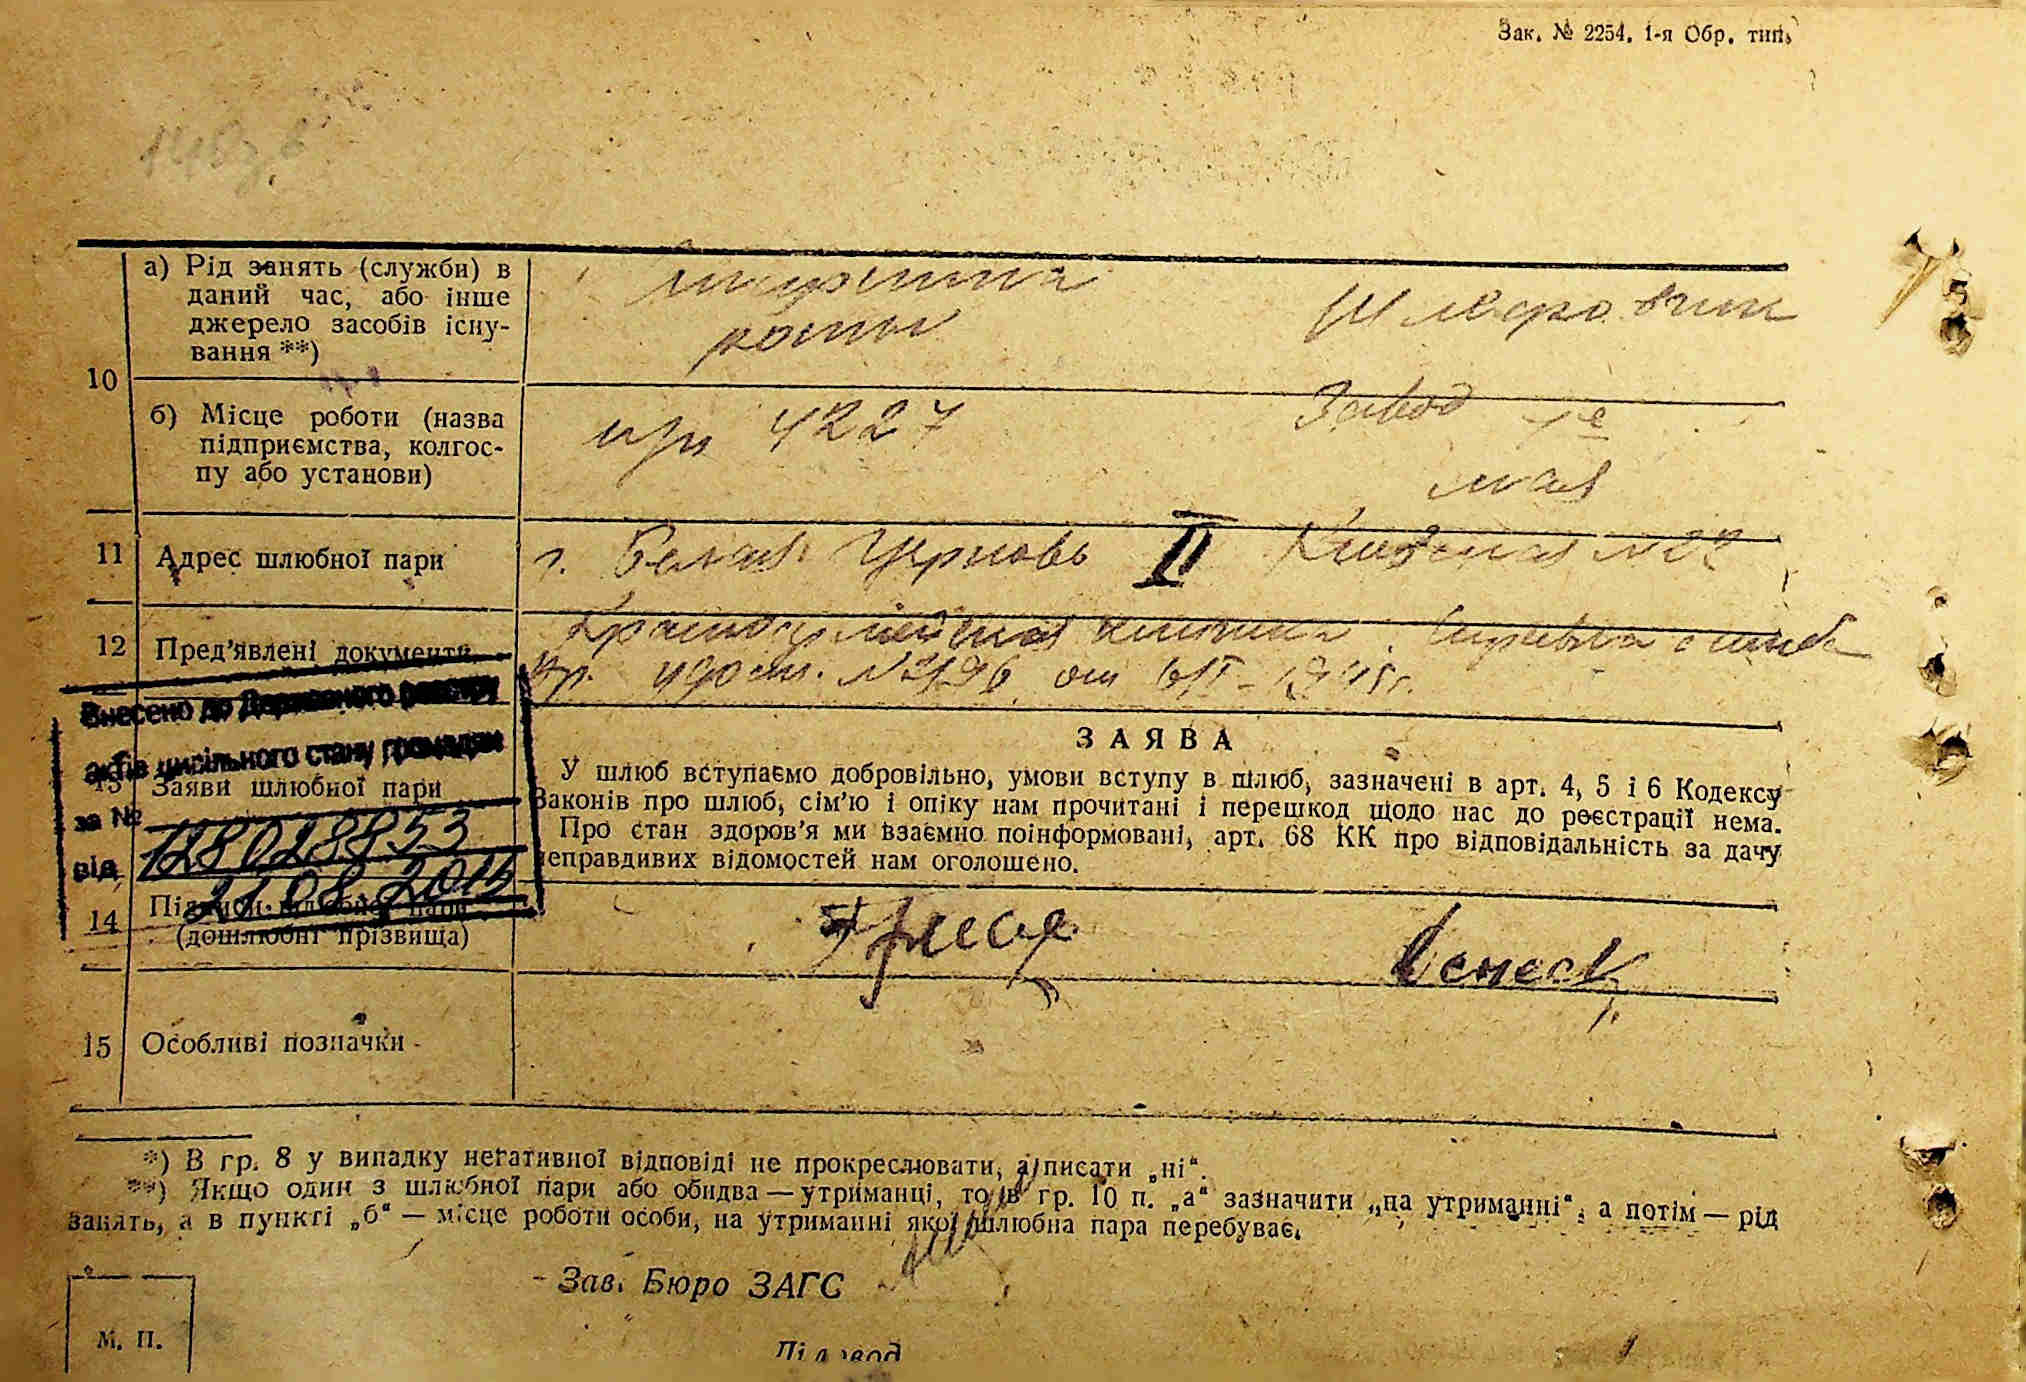 Зак. № 2254. 1-я Обр. тип.
а) Рід занять (служби) в
даний час, або інше
джерело засобів існу-
вання **)
роты
10
б) Місце роботи (назва
підприємства, колгос-
пу або установи)
4227
Завод 1е
мая
11 Адрес шлюбної пари
г. Белая Церковь II Киевская
12 Пред’явлені документи
Красноармейская книжка
удост. от
Внесено до Державного реєстру
актів цивільного стану громадян
за № 128028853
від 21.08.2015
ЗАЯВА
13 Заяви шлюбної пари
У шлюб вступаємо добровільно, умови вступу в шлюб, зазначені в арт. 4, 5 і 6 Кодексу
Законів про шлюб, сім’ю і опіку нам прочитані і перешкод щодо нас до реєстрації нема.
Про стан здоров’я ми взаємно поінформовані, арт. 68 КК про відповідальність за дачу
неправдивих відомостей нам оголошено.
14 Підписи шлюбної пари
(дошлюбні прізвища)
15 Особливі позначки
*) В гр. 8 у випадку негативної відповіді не прокреслювати, а писати „ні“.
**) Якщо один з шлюбної пари або обидва — утриманці, то в гр. 10 п. „а“ зазначити „на утриманні“, а потім — рід
занять, а в пункті „б“ — місце роботи особи, на утриманні якої шлюбна пара перебуває.
Зав. Бюро ЗАГС
М. П.